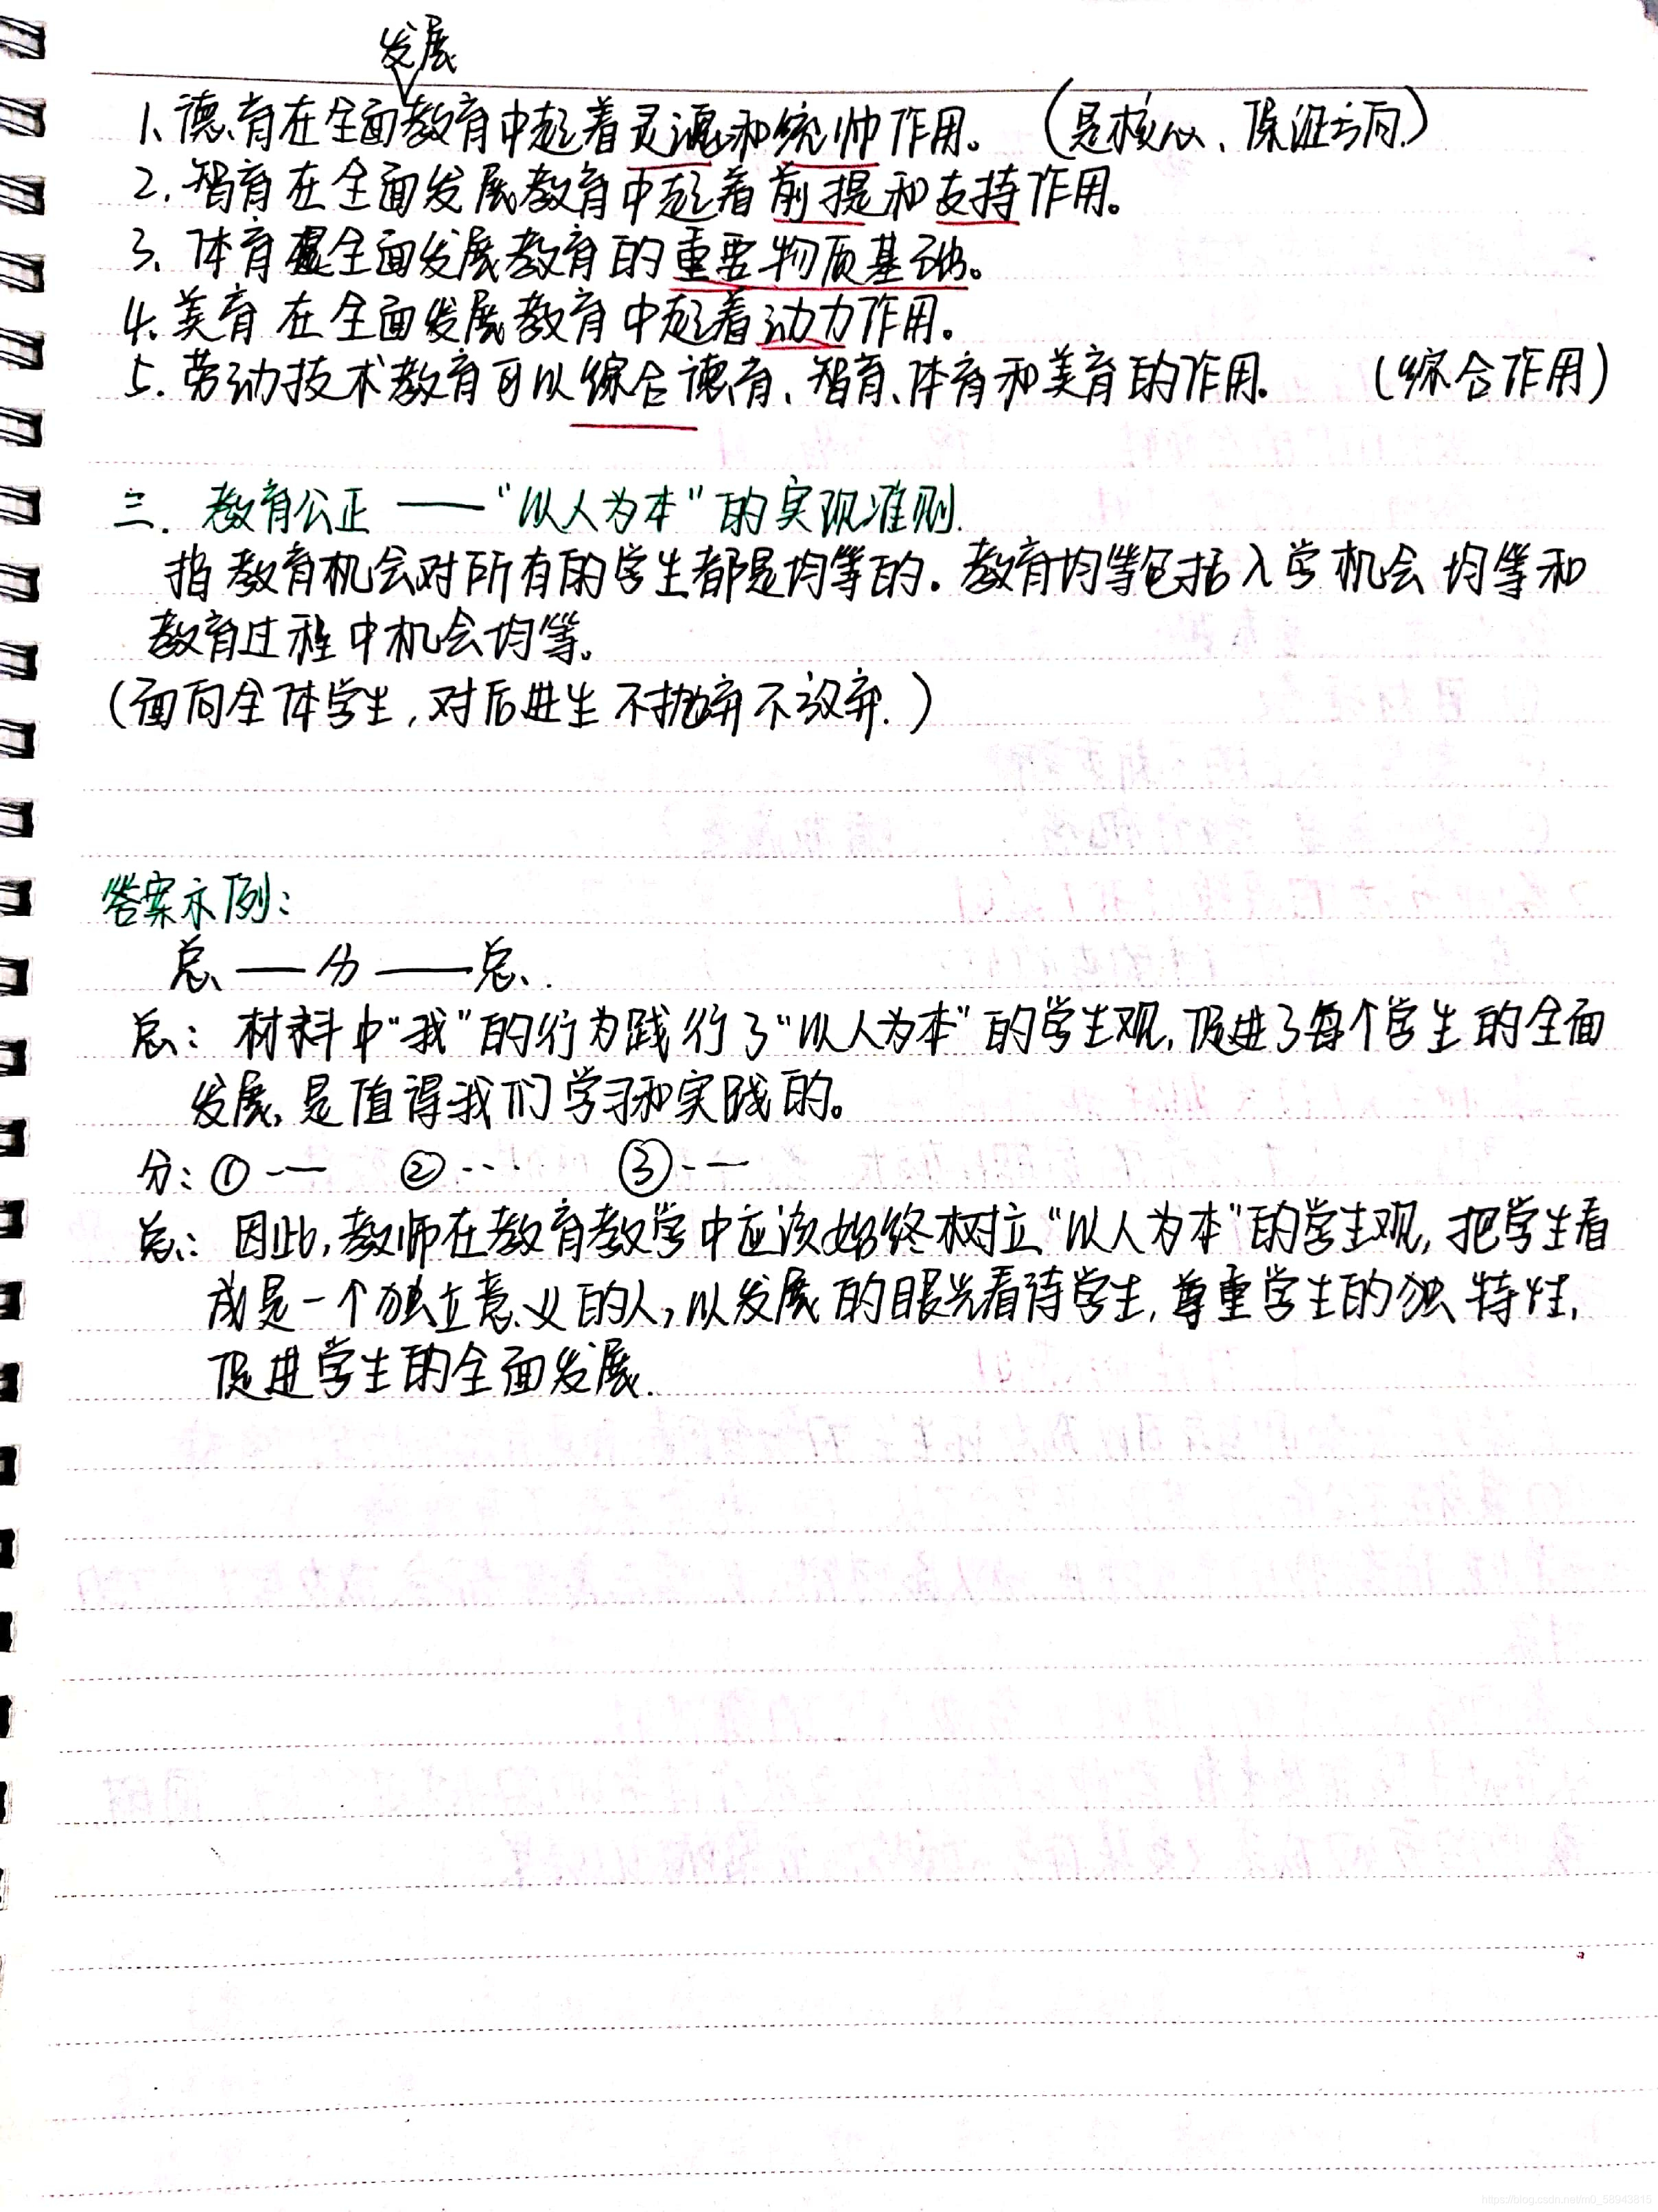 发展
1、德育在全面教育中起着灵魂和统帅作用。（是核心、保证方向.）
2. 智育在全面发展教育中起着前提和支持作用。
3、体育是全面发展教育的重要物质基础。
4、美育在全面发展教育中起着动力作用。
5. 劳动技术教育可以综合德育、智育、体育和美育的作用. （综合作用）
三. 教育公正 ——“以人为本”的实现准则.
指教育机会对所有的学生都是均等的. 教育均等包括入学机会均等和
教育过程中机会均等。
（面向全体学生, 对后进生不抛弃不放弃.）
答案示例:
总 —— 分 —— 总.
总: 材料中“我”的行为践行了“以人为本”的学生观, 促进了每个学生的全面
发展, 是值得我们学习和实践的。
分: ①·— ②··· ③·—
总: 因此, 教师在教育教学中应该始终树立“以人为本”的学生观, 把学生看
成是一个独立意义的人, 以发展的眼光看待学生, 尊重学生的独特性,
促进学生的全面发展.
https://blog.csdn.net/m0_58943815